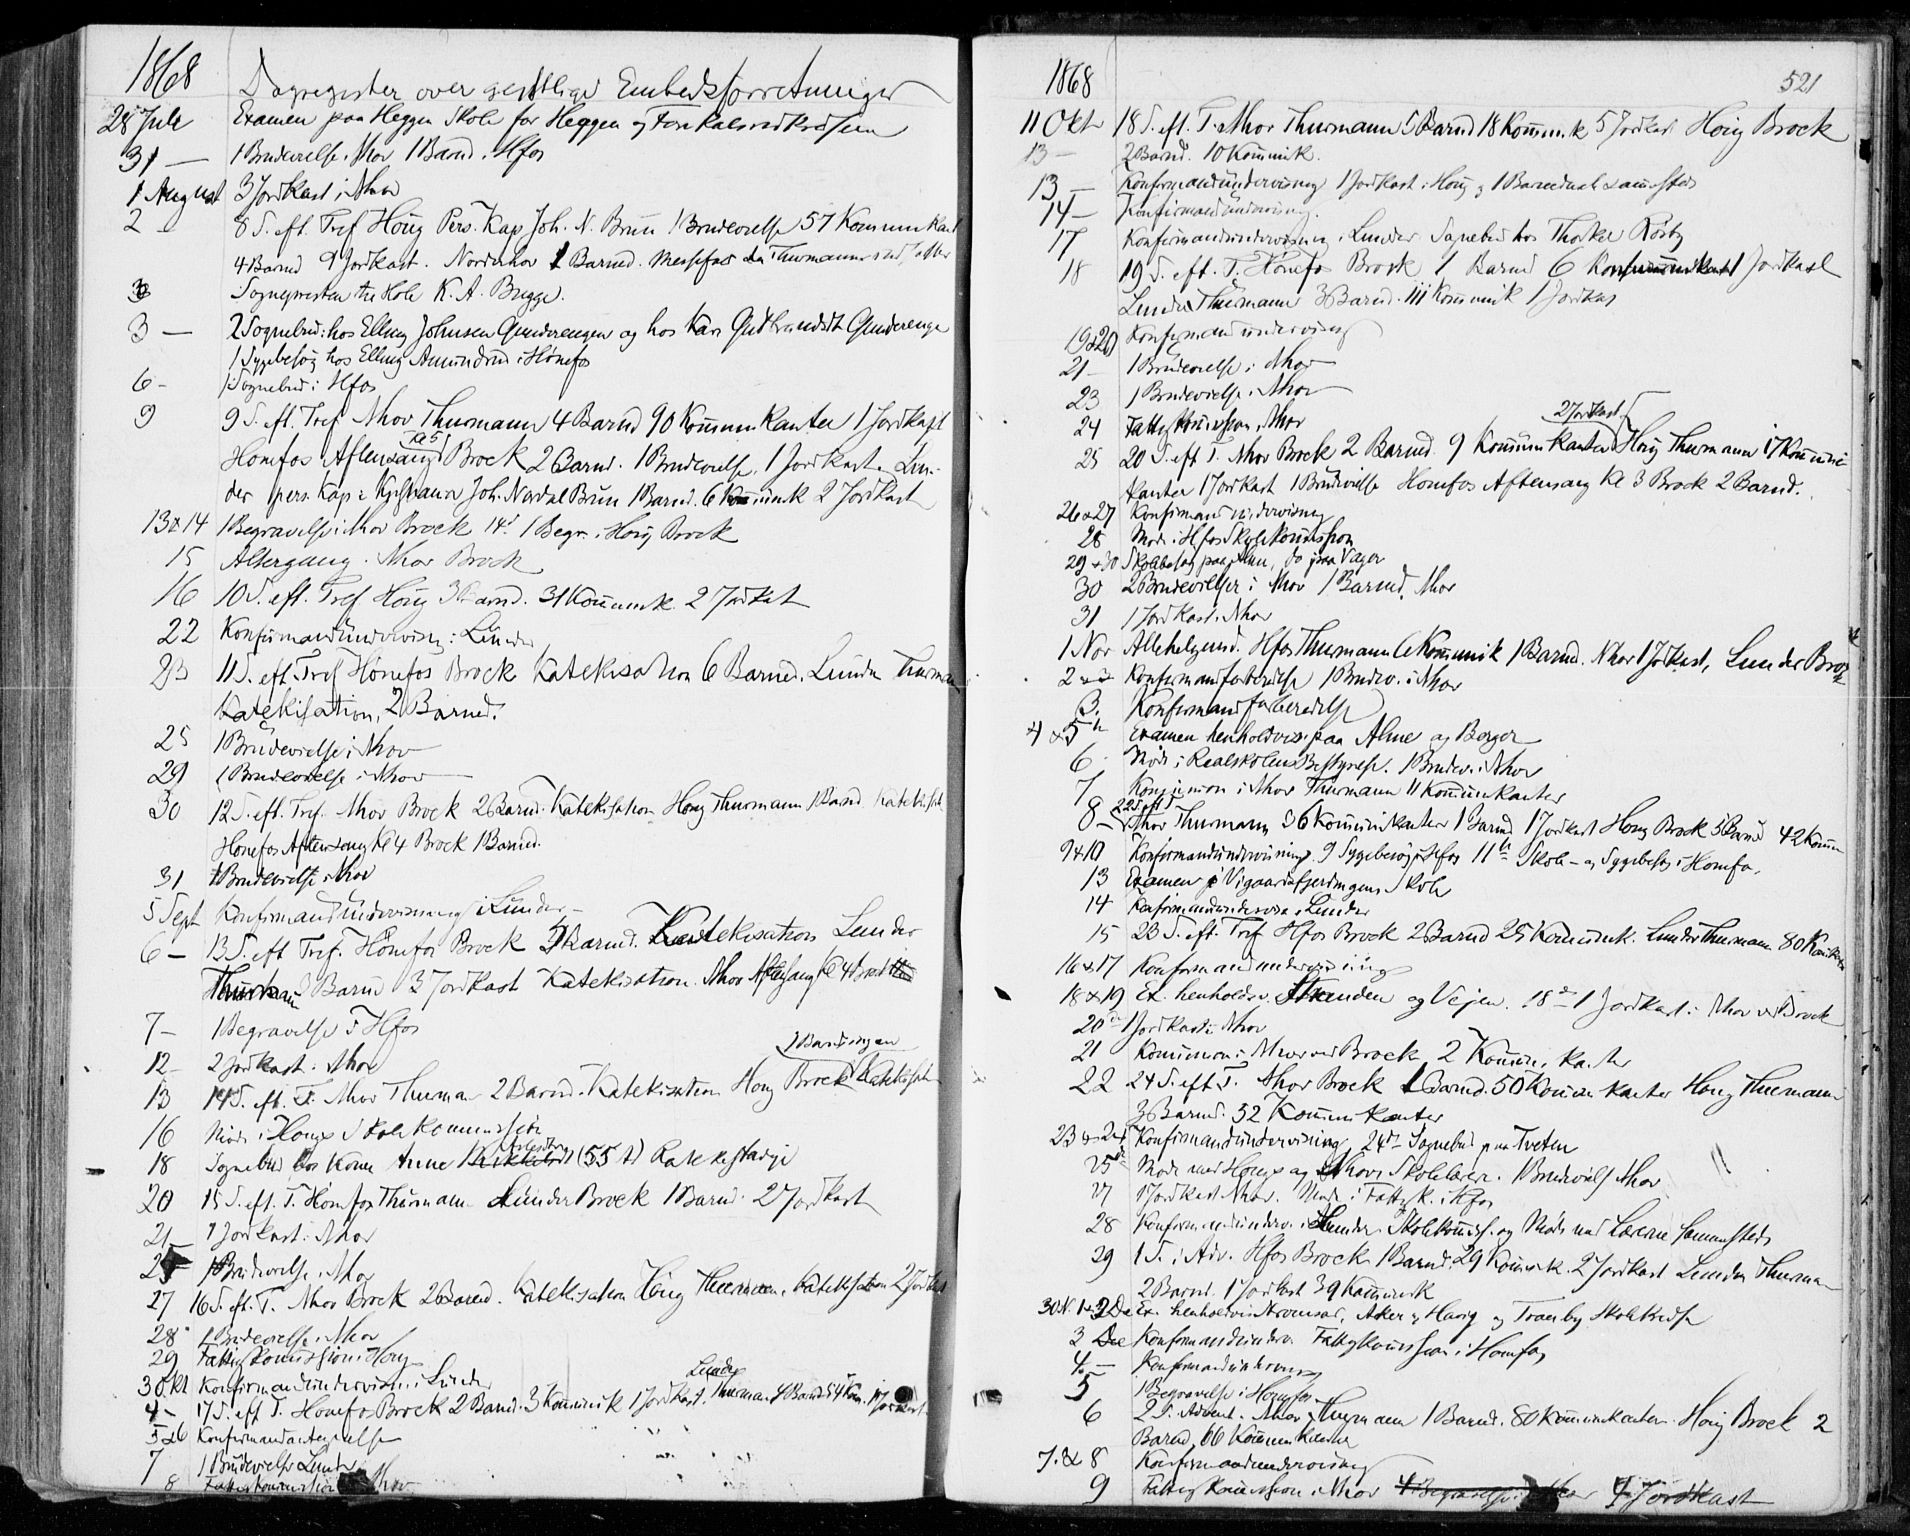 1868 Dagregister over geistlige Embedsforretninger
28 Juli Examen paa Heggen Skole for Heggen og
31 — 1 Brudevielse. Nhov 1 Barnd. Hfos
1 August 3 Jordkast i Nhov
2 — 8 S. eft. Tref Houg Pers. Kap Joh. N. Brun 1 Brudevielse 57 Kommunikant
4 Barnd 9 Jordkast. Norderhov 1 Barned. Messefald da Thurmann
3 Sognepresten til Hole K. A. Bugge.
3 — 2 Sognebud: hos Elling Johnsen Gunderengen og hos Kari Gudbrandsdt Gunderenge
1 Sygebesøg hos Elling Amundrud i Hønefos
6 - 1 Sognebud i Hfos
9 9 S. eft. Tref Nhov Thurmann 4 Barnd 90 Kommunikanter 1 Jordkast
Honefos Aftensang Kl 5 Brock 2 Barnd. 1 Brudevielse. 1 Jordkast. Lun-
der pers. Kap: Joh. Nordal Brun 1 Barnd. 6 Kommunik 2 Jordkast
13 & 14 1 Begravelse i Nhov Brock 14d 1 Begr. i Houg Brock
15 Altergang. Nhov Brock
16 10 S. eft. Tref Houg 3 Barnd. 31 Kommunik. 2 Jordkast
22 Konfirmandundervisn: i Lunder
23 11 S. eft. Tref Hønefos Brock Katekisation 6 Barned. Lunder Thurman
Katekisation, 2 Barned.
25 1 Brudevielse i Nhov
29 1 Brudevielse i Nhov
30 12 S. eft. Tref. Nhov Brock 2 Barnd. Katekisation Houg Thurmann 1 Barnd Katekisat.
Hønefos Aftensang Kl 4 Brock 1 Barned.
31 1 Brudevielse i Nhov
5 Sept Konfirmandundervisning i Lunder -
6 — 13 S. eft Tref. Hønefos Brock 5 Barnd. Katekisation Lunder
Thurmann 2 Barnd 3 Jordkast Katekisation. Nhov Aftensang Kl 4 Brock
7 — 1 Begravelse i Hfos
12 - 2 Jordkast i Nhov
13 14 S. eft. T. Nhov Thurman 2 Barnd. Katekisation Houg Brock Katekisat
16 Møde i Hougs Skolekommission
18 Sognebud hos Kone Anne (55 A)
20 15 S. eft. T. Hønefos Thurmann Lunder Brock 1 Barnd. 2 Jordkast
21 — 1 Jordkast i Nhov
25 1 Brudevielse i Nhov
27 16 S. eft. T. Nhov Brock 2 Barned. Katekisation Houg Thurmann, Katekisation 2 Jordkast
28 1 Brudevielse i Nhov
29 Fattigkommission i Houg
3 Okt Konfirmandundervisn. i Lunder
4 - 17 S. eft T. Honefos Brock 2 Barnd. 3 Kommunik 1 Jordkast. Lunder Thurman 4 Barnd 54 Kom. 1 Jordkast
5 & 6
7 1 Brudevielse Lunder
8 Fattigkommission Nhov
1868 521
11 Okt 18 S. eft. T. Nhov Thurmann 5 Barnd 18 Kommunik 5 Jordkast Houg Brock
13 — 2 Barnd. 10 Kommunik.
13 — Konfirmandundervisning 1 Jordkast i Houg og 1 Barnedaab sammesteds
14 — Konfirmandundervisning.
17 Konfirmandundervisning i Lunder Sognebud hos Thorkel Rosby
18 19 S. eft. T. Hønefos Brock 1 Barnd 6 Kommunikant 1 Jordkast
Lunder Thurmann 3 Barnd. 111 Kommunik 1 Jordkast
19 & 20 Konfirmandundervisning
21 — 1 Brudevielse i Nhov
23 1 Brudevielse i Nhov
24 Fattigkommission i Nhov
25 20 S. eft T. Nhov Brock 2 Barned. 9 Kommunikanter 2 Jordkast Houg Thurmann 17 Kommuni-
kanter 1 Jordkast 1 Brudevielse Honefos Aftensang Kl 3 Brock 2 Barnd.
26 & 27 Konfirmandundervisning
28 Møde i Hfos Skolekommission
29 & 30 Skolebesøg paa Alme, do paa Vager
30 2 Brudevielser i Nhov 1 Barned. Nhov
31 1 Jordkast. Nhov
1 Nov Allehelgensd. Hfos Thurmann 6 Kommunik 1 Barnd. Nhov 1 Jordkast, Lunder Brock
2 Konfirmandforberedelse 1 Brudev. i Nhov
3. Konfirmandforberedelse
4 & 5te Examen henholdsvis paa Alme og Berger
6 Møde i Realskolens Bestyrelse. 1 Brudev. i Nhov
7 Kommunion i Nhov Thurmann 11 Kommunikanter
8 — 22 S eft T Nhov Thurmann 36 Kommunikanter 1 Barnd 1 Jordkast Houg Brock 3 Barnd 42 Komm
9 & 10 Konfirmandundervisning. 9 Sygebesøg i Hfos 11te Skole- og Sygebesøg i Honefos.
13 Examen i Vigaardsfjerdingens Skole
14 Konfirmandundervisn. i Lunder
15 23 S. eft. Tref Hfos Brock 2 Barnd 25 Kommunik. Lunder Thurmann 80 Komm
16 & 17 Konfirmandundervisning
18 & 19 Ex. henholdsv. Stranden og Vejen. 18de 1 Jordkast i Nhov ved Brock
20de 1 Jordkast i Nhov
21 Kommunion i Nhov ved Brock 2 Kommunikanter
22 24 S. eft T. Nhov Brock 1 Barnd. 50 Kommunikanter Houg Thurmann
3 Barnd. 32 Kommunikanter
23 & 24 Konfirmandundervisning 24de Sognebud paa Tveten
25 Møde med Hougs og Nhovs Skolelærere. 1 Brudeviels Nhov
27 1 Jordkast Nhov. Møde i Fattigk. i Hfos
28 Konfirmandunderv. i Lunder Skolekommiss. og Møde med Lærerne sammesteds
29 1 S. i Adv. Hfos Brock 1 Barnd. 29 Kommunik. 2 Jordkast Lunder Thurmann
2 Barnd. 1 Jordkast 39 Kommunik
30 N. 1 & 2 De Ex. henholdsvis Asker og Houg og Tranby Skolekredse
3 Dec Konfirmandunderv. Fattigkommission i Honefos
4. — Konfirmandundervisning
5 1 Begravelse i Hønefos
6 2 S. Advent. Nhov Thurmann 1 Barnd. 80 Kommunikanter Houg Brock 2
Barnd, 66 Kommunikanter
7. & 8 Konfirmandundervisning
9 Fattigkommission i Nhov Jordkast